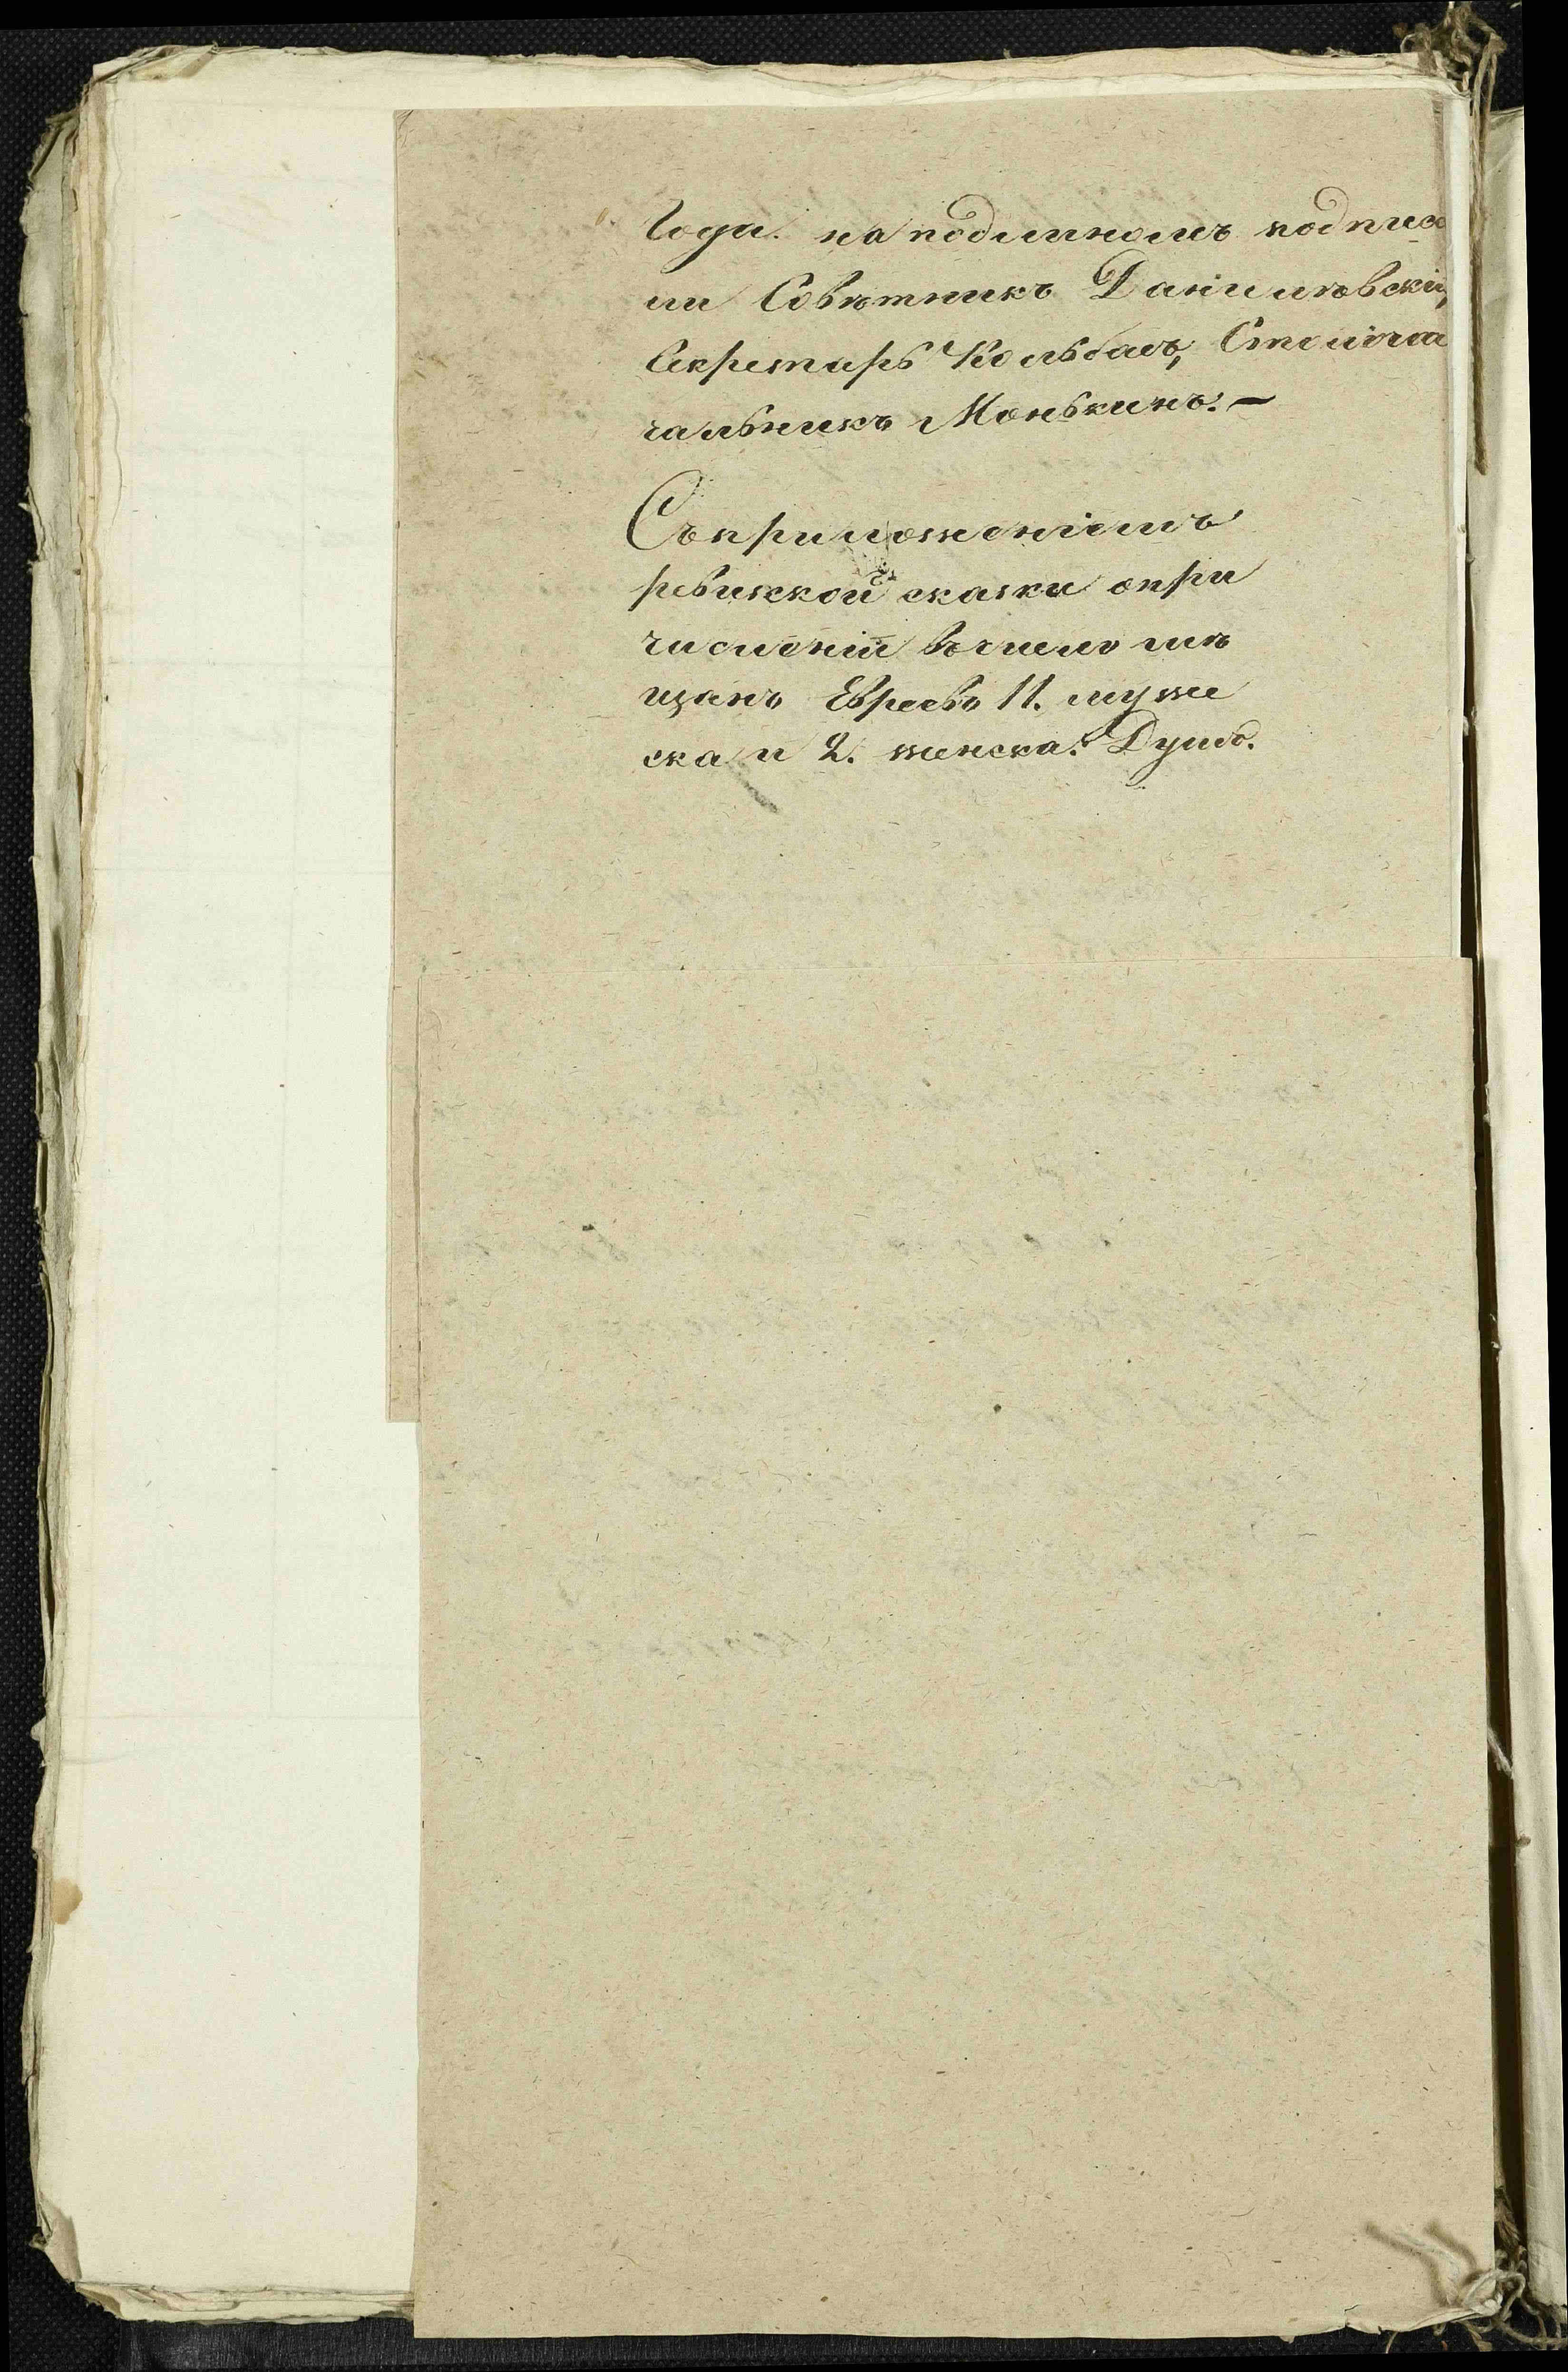 Года. на подлинномъ подписа
ли Совѣтникъ Данилѣвскій,
Секретарь Кольбасъ, Столона
чальникъ Монькинъ. —
Съ приложеніемъ
ревизкой сказки о при
численіи въ число мѣ
щанъ Евреевъ 11. муже
ска и 2. женска. Душъ.